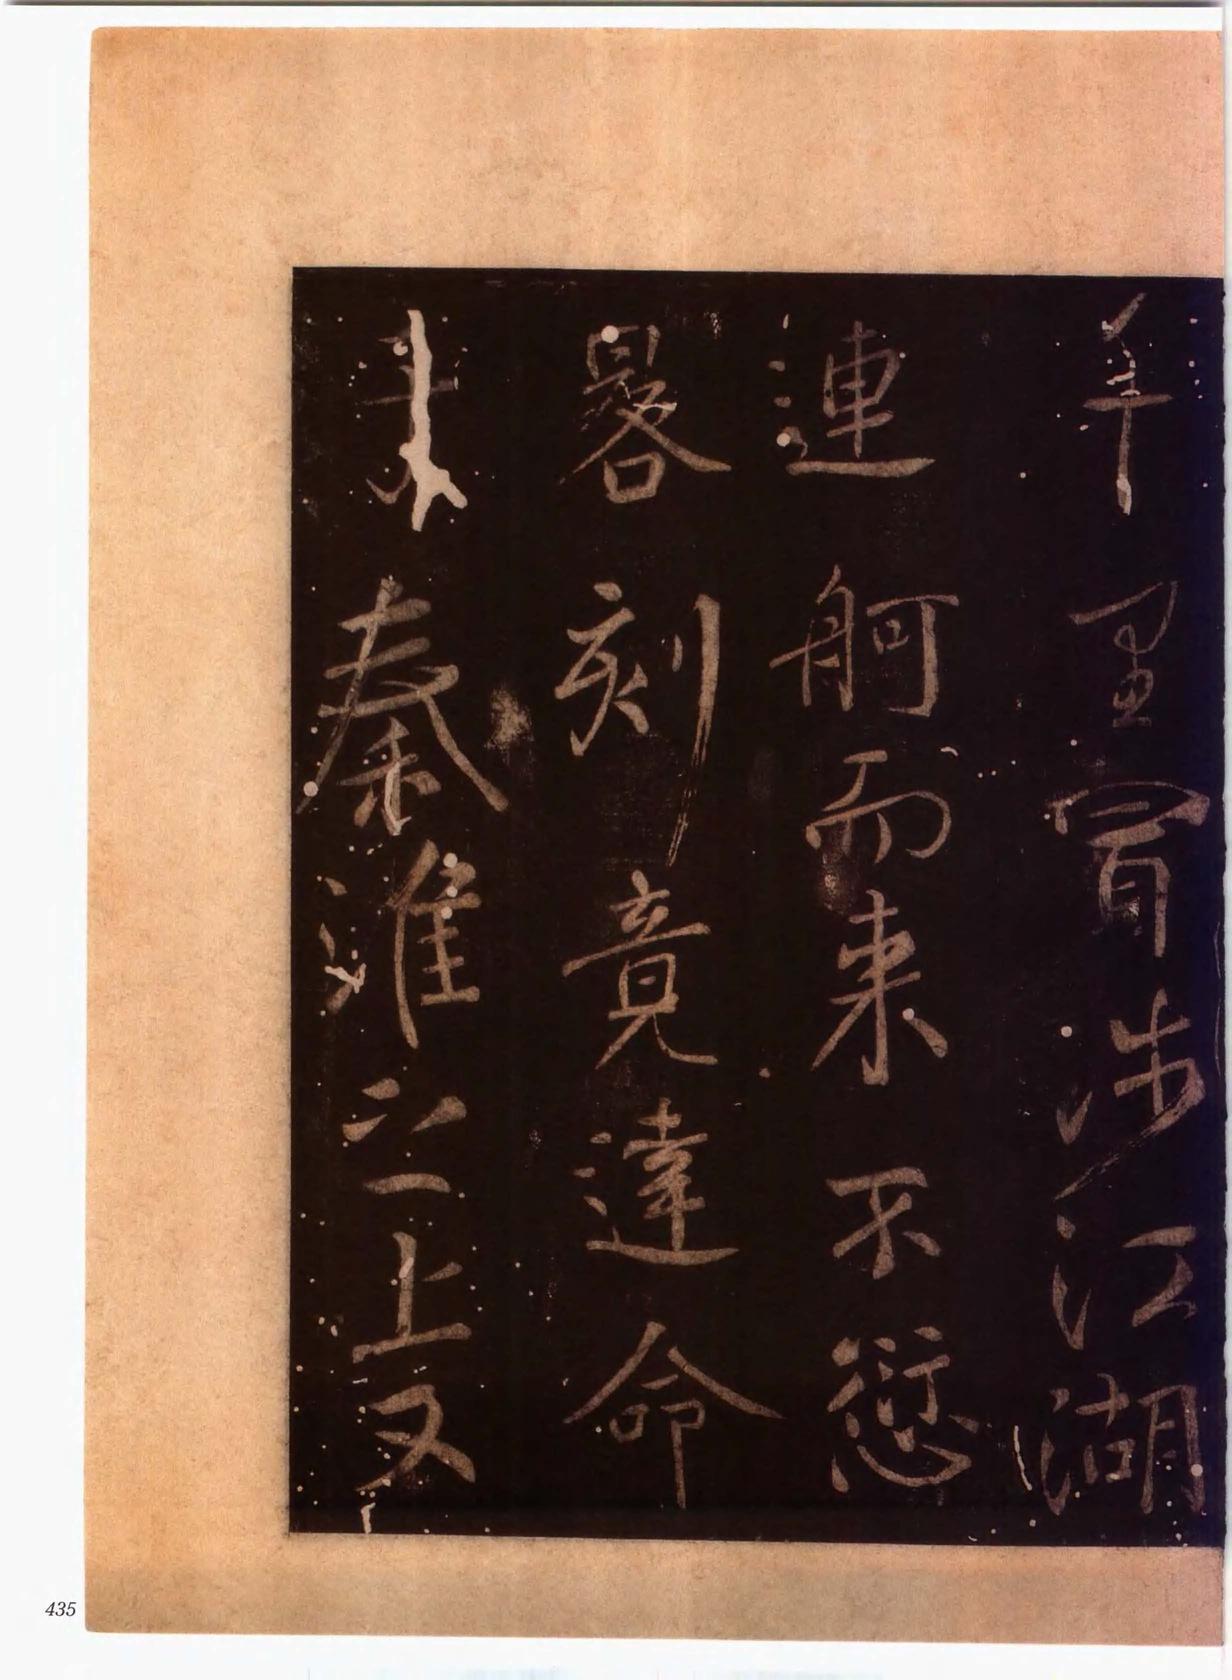 千里冒涉江湖
連舸而来不愆
晷刻竟達命
秦淮之上又
435